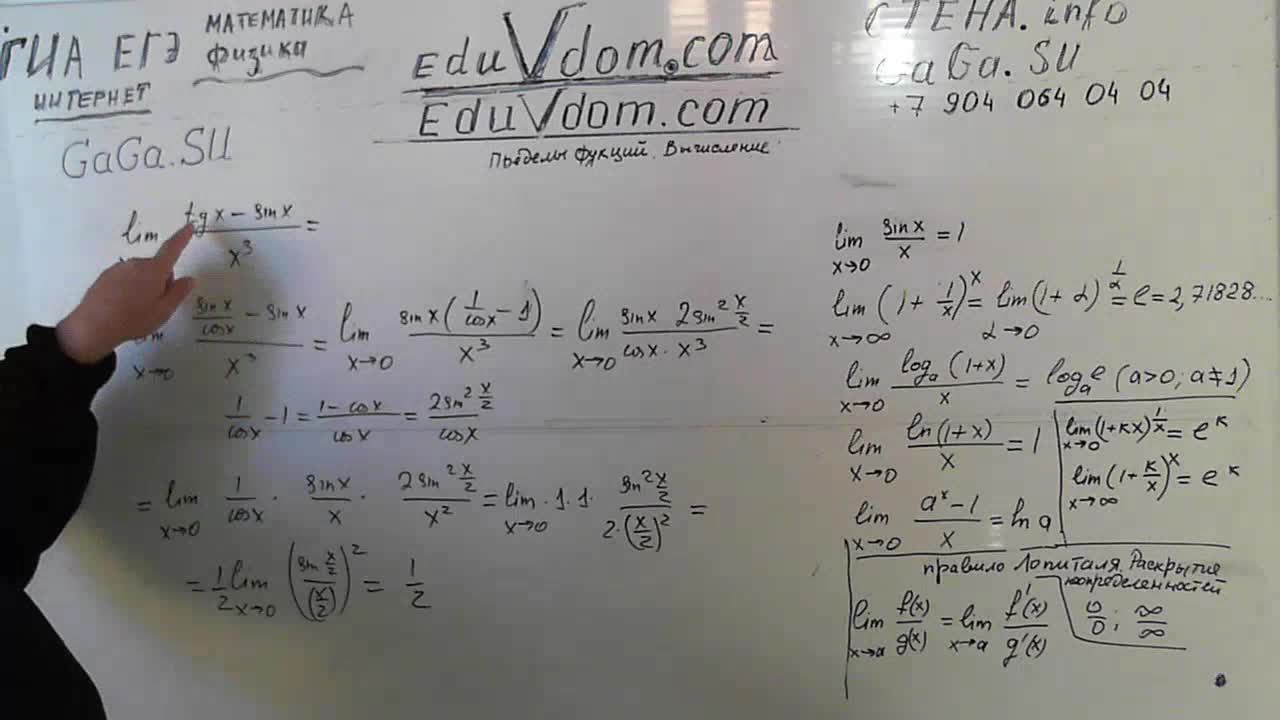 ГИА ЕГЭ МАТЕМАТИКА
физика
ИНТЕРНЕТ
GaGa.SU
EduVdom.com
EduVdom.com
Пределы фукций. Вычисление
СТЕНА.info
GaGa.SU
+7 904 064 04 04
lim tgx − sinx / x³ =
lim x→0 (sinx/cosx − sinx) / x³ = lim x→0 sinx(1/cosx − 1) / x³ = lim x→0 sinx 2sin² x/2 / cosx · x³ =
1/cosx − 1 = 1−cosx / cosx = 2sin² x/2 / cosx
= lim x→0 1/cosx · sinx/x · 2sin² x/2 / x² = lim x→0 · 1 · 1 · sin² x/2 / 2·(x/2)² =
= 1/2 lim x→0 (sin x/2 / (x/2))² = 1/2
lim x→0 sinx/x = 1
lim x→∞ (1 + 1/x)^x = lim α→0 (1 + α)^1/α = e = 2,71828...
lim x→0 logₐ(1+x) / x = logₐe (a>0; a≠1)
lim x→0 ln(1+x) / x = 1
lim x→0 (1+кx)^1/x = e^к
lim x→∞ (1+к/x)^x = e^к
lim x→0 aˣ−1 / x = ln a
правило Лопиталя. Раскрытие
неопределенностей
lim x→a f(x)/g(x) = lim x→a f'(x)/g'(x)
0/0 ; ∞/∞